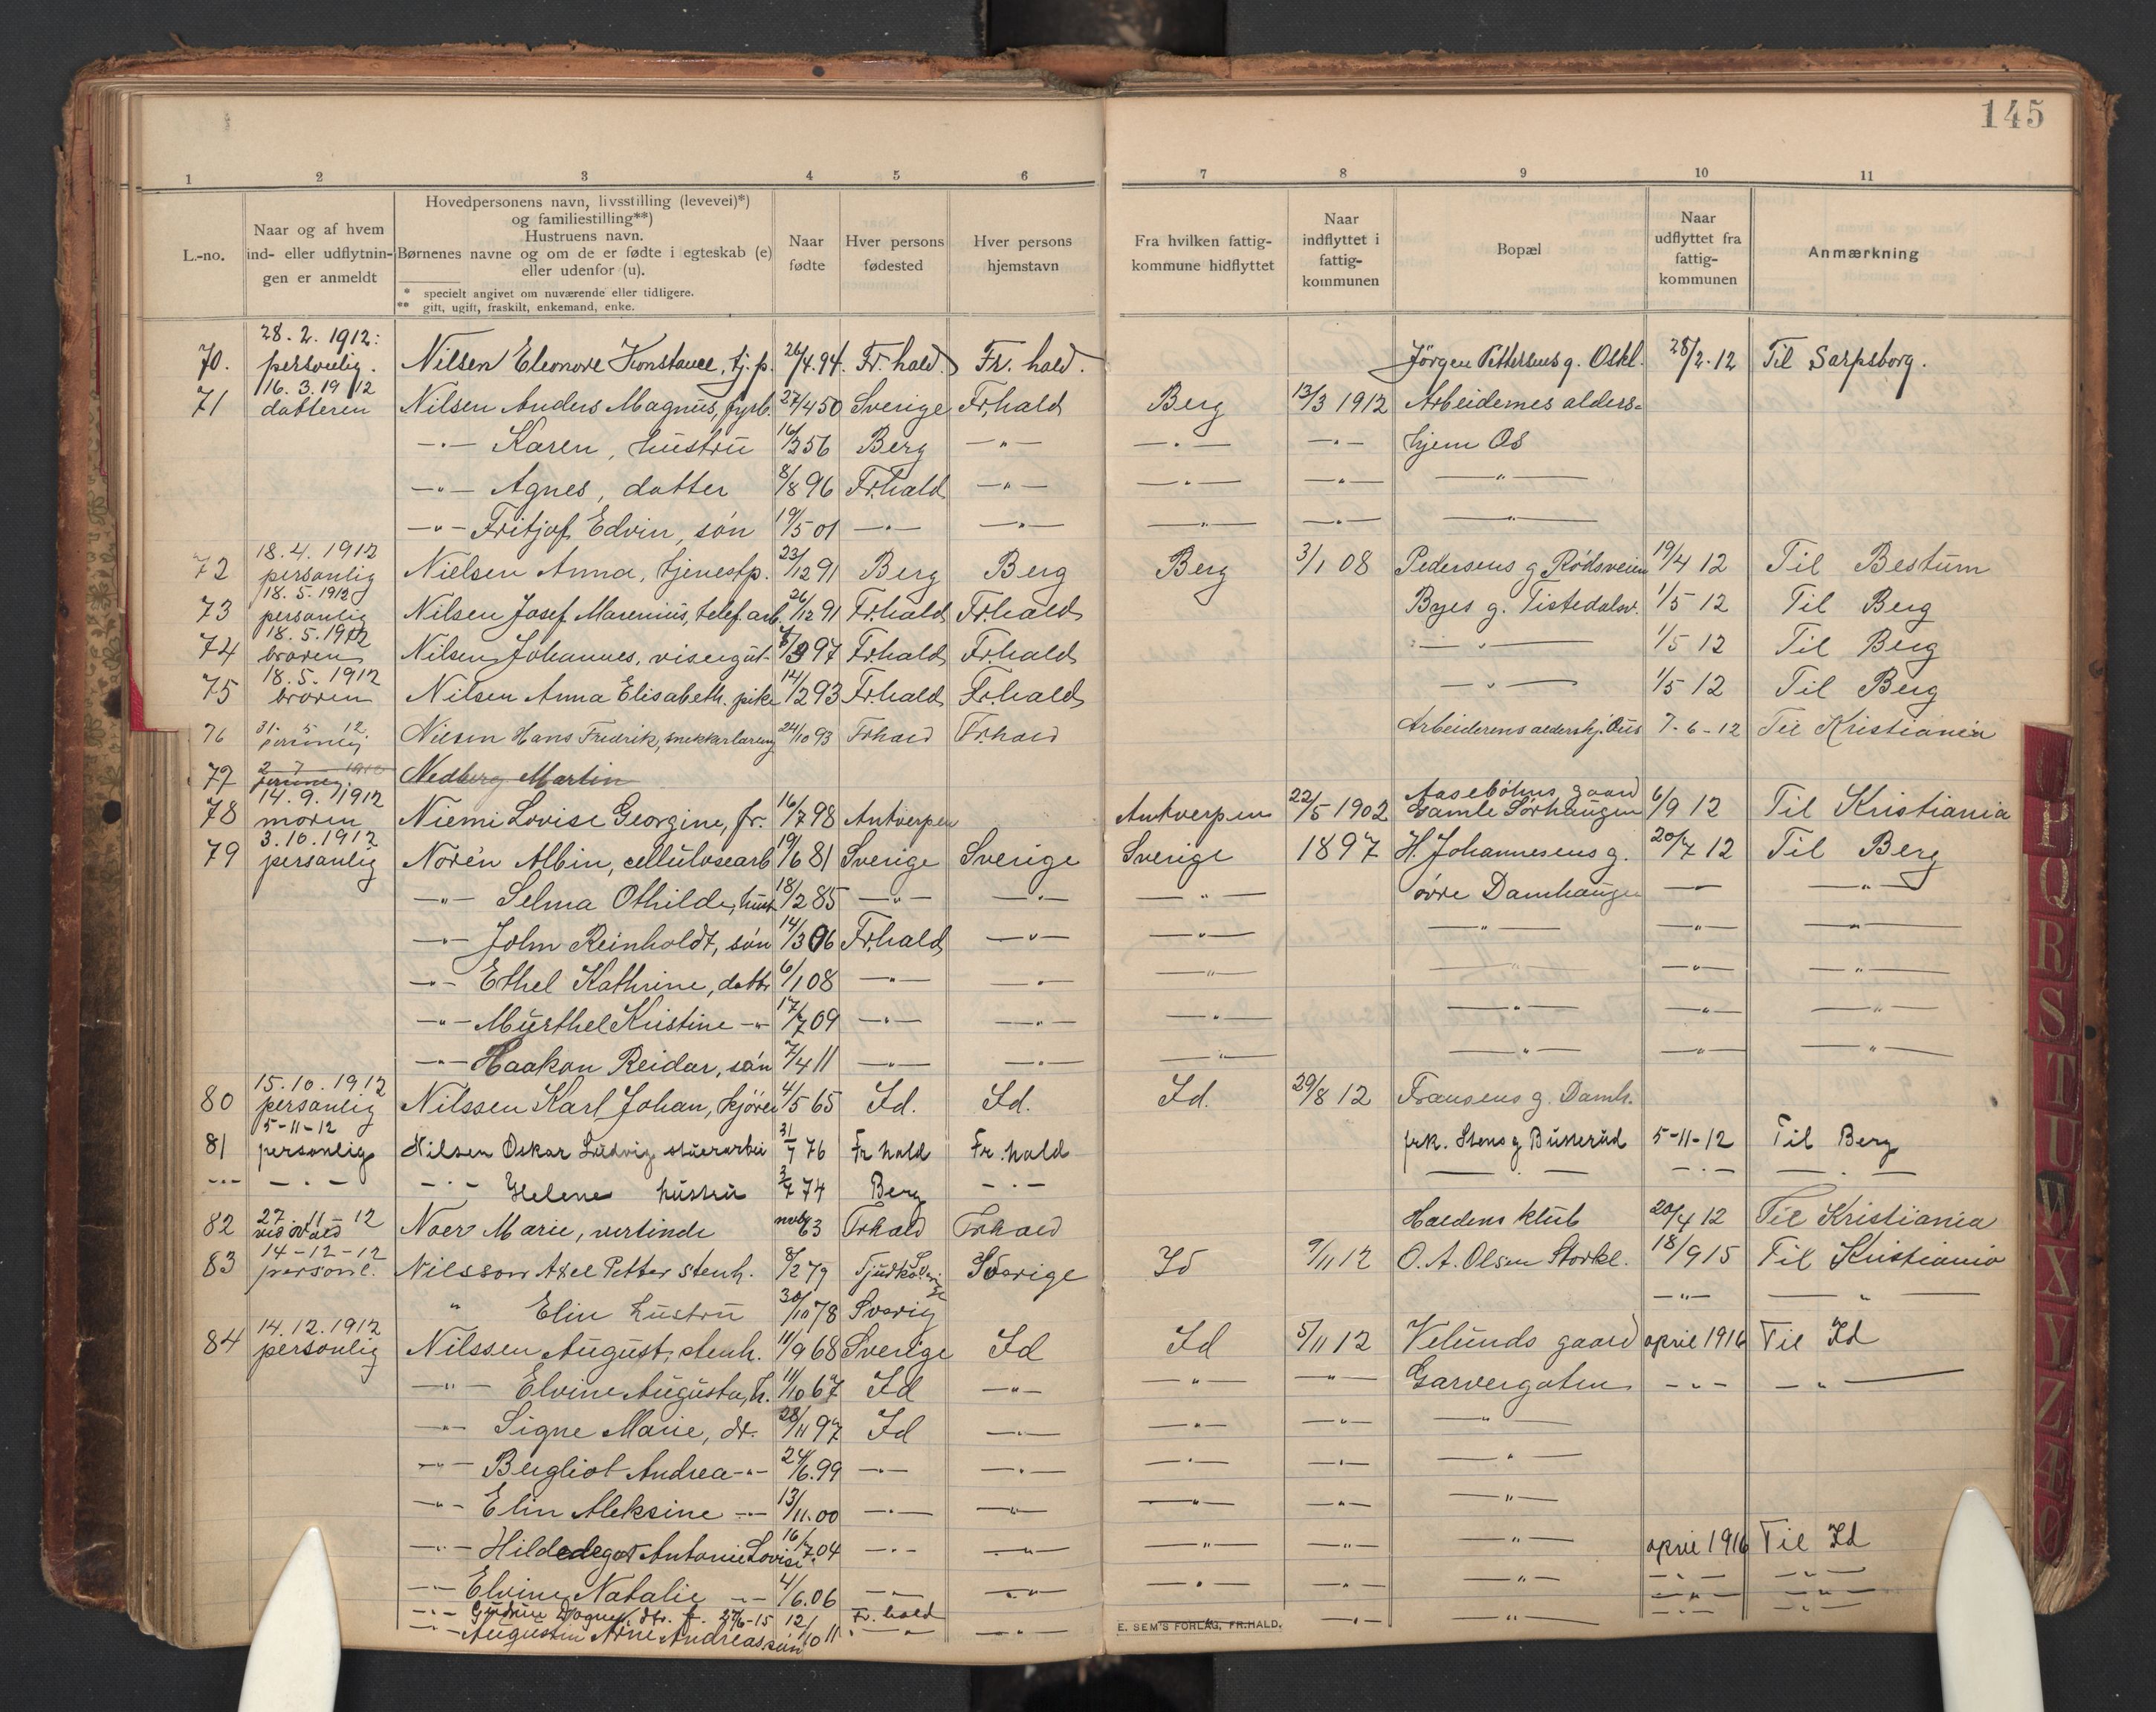 145
1 2 3 4 5 6 7 8 9 10 11
L.-no.
Naar og af hvem
ind- eller udflytnin-
gen er anmeldt
Hovedpersonens navn, livsstilling (levevei)*)
og familiestilling**)
Hustruens navn.
Børnenes navne og om de er fødte i egteskab (e)
eller udenfor (u).
* specielt angivet om nuværende eller tidligere.
** gift, ugift, fraskilt, enkemand, enke.
Naar
fødte
Hver persons
fødested
Hver persons
hjemstavn
Fra hvilken fattig-
kommune hidflyttet
Naar
indflyttet i
fattig-
kommunen
Bopæl
Naar
udflyttet fra
fattig-
kommunen
Anmærkning
28.2.1912:
70. personlig. Nilsen Eleonore Konstance, tj. p. 26/4.94. Fr. hald. Fr. hald. Jörgen Pettersens g. Oskl. 28/2.12 Til Sarpsborg.
16.3.1912
71 datteren Nilsen Anders Magnus, fyrb. 27/4 50 Sverige Fr.hald Berg 13/3 1912 Arbeidernes alders=
-"- Karen, hustru 16/3 56 Berg -"- -"- -"- hjem Os
-"- Agnes, datter 8/8 96 Fr.hald -"- -"- -"- -"-
-"- Fritjof Edvin, søn 19/5 01 -"- -"- -"- -"- -"-
18.4.1912
72 personlig Nielsen Anna, tjenestp. 23/12 91 Berg Berg Berg 3/1 08 Pedersens g Rødsveien 19/4 12 Til Bestum
18.5.1912
73 personlig Nilsen Josef Marenius, telef.arb. 26/12 91 Fr.hald Fr.hald Byes g. Tistedalsv. 1/5 12 Til Berg
18.5.1912
74 broren Nilsen Johannes, visergut 5/3 97 Fr.hald Fr.hald -"- 1/5 12 Til Berg
18.5.1912
75 broren Nilsen Anna Elisabeth. pike 14/2 93 Fr.hald Fr.hald -"- 1/5 12 Til Berg
31. 5 12.
76 personlig Nilsen Hans Fredrik, snekkerlærling 24/10 93 Frhald Fr.hald Arbeiderens aldershj. Ous 7-6-12 Til Kristiania
2 7 1912
77 personlig. Nedberg Martin
14.9.1912 Aasebøhns gaard
78 moren Niemi Lovise Georgine, fr. 16/7 98 Antverpen Antverpen 22/5 1902 Gamle Sørhaugen 6/9 12 Til Kristiania
3.10.1912
79 personlig Norén Albin, cellulosearb 19/6 81 Sverige Sverige Sverige 1897 H. Johannesens g. 20/7 12 Til Berg
-"- Selma Othilde, hust 18/2 85 -"- -"- -"- øvre Damhaugen -"- -"-
-"- John Reinholdt, søn 14/3 06 Fr.hald -"- -"- -"- -"- -"-
-"- Ethel Kathrine, datter 6/1 08 -"- -"- -"- -"- -"- -"-
-"- Murthel Kristine -"- 17/7 09 -"- -"- -"- -"- -"- -"-
-"- Haakon Reidar, søn 7/4 11 -"- -"- -"- -"- -"- -"-
15.10.1912
80 personlig Nilssen Karl Johan, kjører 4/5 65 Id. Id. Id. 29/8 12 Fransens g. Damh.
5-11-12
81 personlig Nilsen Oskar Ludvig stuerarbei 31/7 76 Fr hald Fr. hald frk. Stens g Buskerud 5-11-12 Til Berg
-"- -"- -"- Helene hustru 74 Berg -"- -"- -"- -"-
27-11-12
82 Noer Marie, vertinde novbr 63 Frhald Frhald Haldens klub 20/4 12 Til Kristiania
14-12-12
83 personl. Nilsson Axel Petter stenh. 8/2 79 Sverige Id 9/11 12 O. A. Olsen Storkl. 18/9 15 Til Kristiania
" Elin hustru 30/10 78 Sverig -"- -"-
14.12.1912
84 personlig Nilssen August, stenh. 11/9 68 Sverige Id Id 5/11 12 Velunds gaard april 1916 Til Id
-"- Elvine Augusta, h. 11/10 67 Id -"- -"- -"- Garvergaten -"- -"-
-"- Signe Marie, dt. 28/11 97 Id -"- -"- -"- -"-
-"- Bergliot Andrea -"- 24/6.99 -"- -"- -"- -"- -"-
-"- Elin Aleksine -"- 13/11.00 -"- -"- -"- -"- -"-
-"- Hildedegot Antonie Lovise 16/7.04 -"- -"- -"- -"- -"- april 1916 Til Id
-"- Elvine Natalie -"- 4/6.06 -"- -"- -"- -"- -"- -"- -"-
-"- Gudrun Dagny, dtr. f. 27/6-15 Fr. hald -"- -"-
-"- Augustin Arne Andreas søn 12/10 11 -"- -"- -"- -"- -"- -"-
E. SEM'S FORLAG, FR.HALD.
P
Q
R
S
T
U
W
X
Y
Z
Æ
Ø